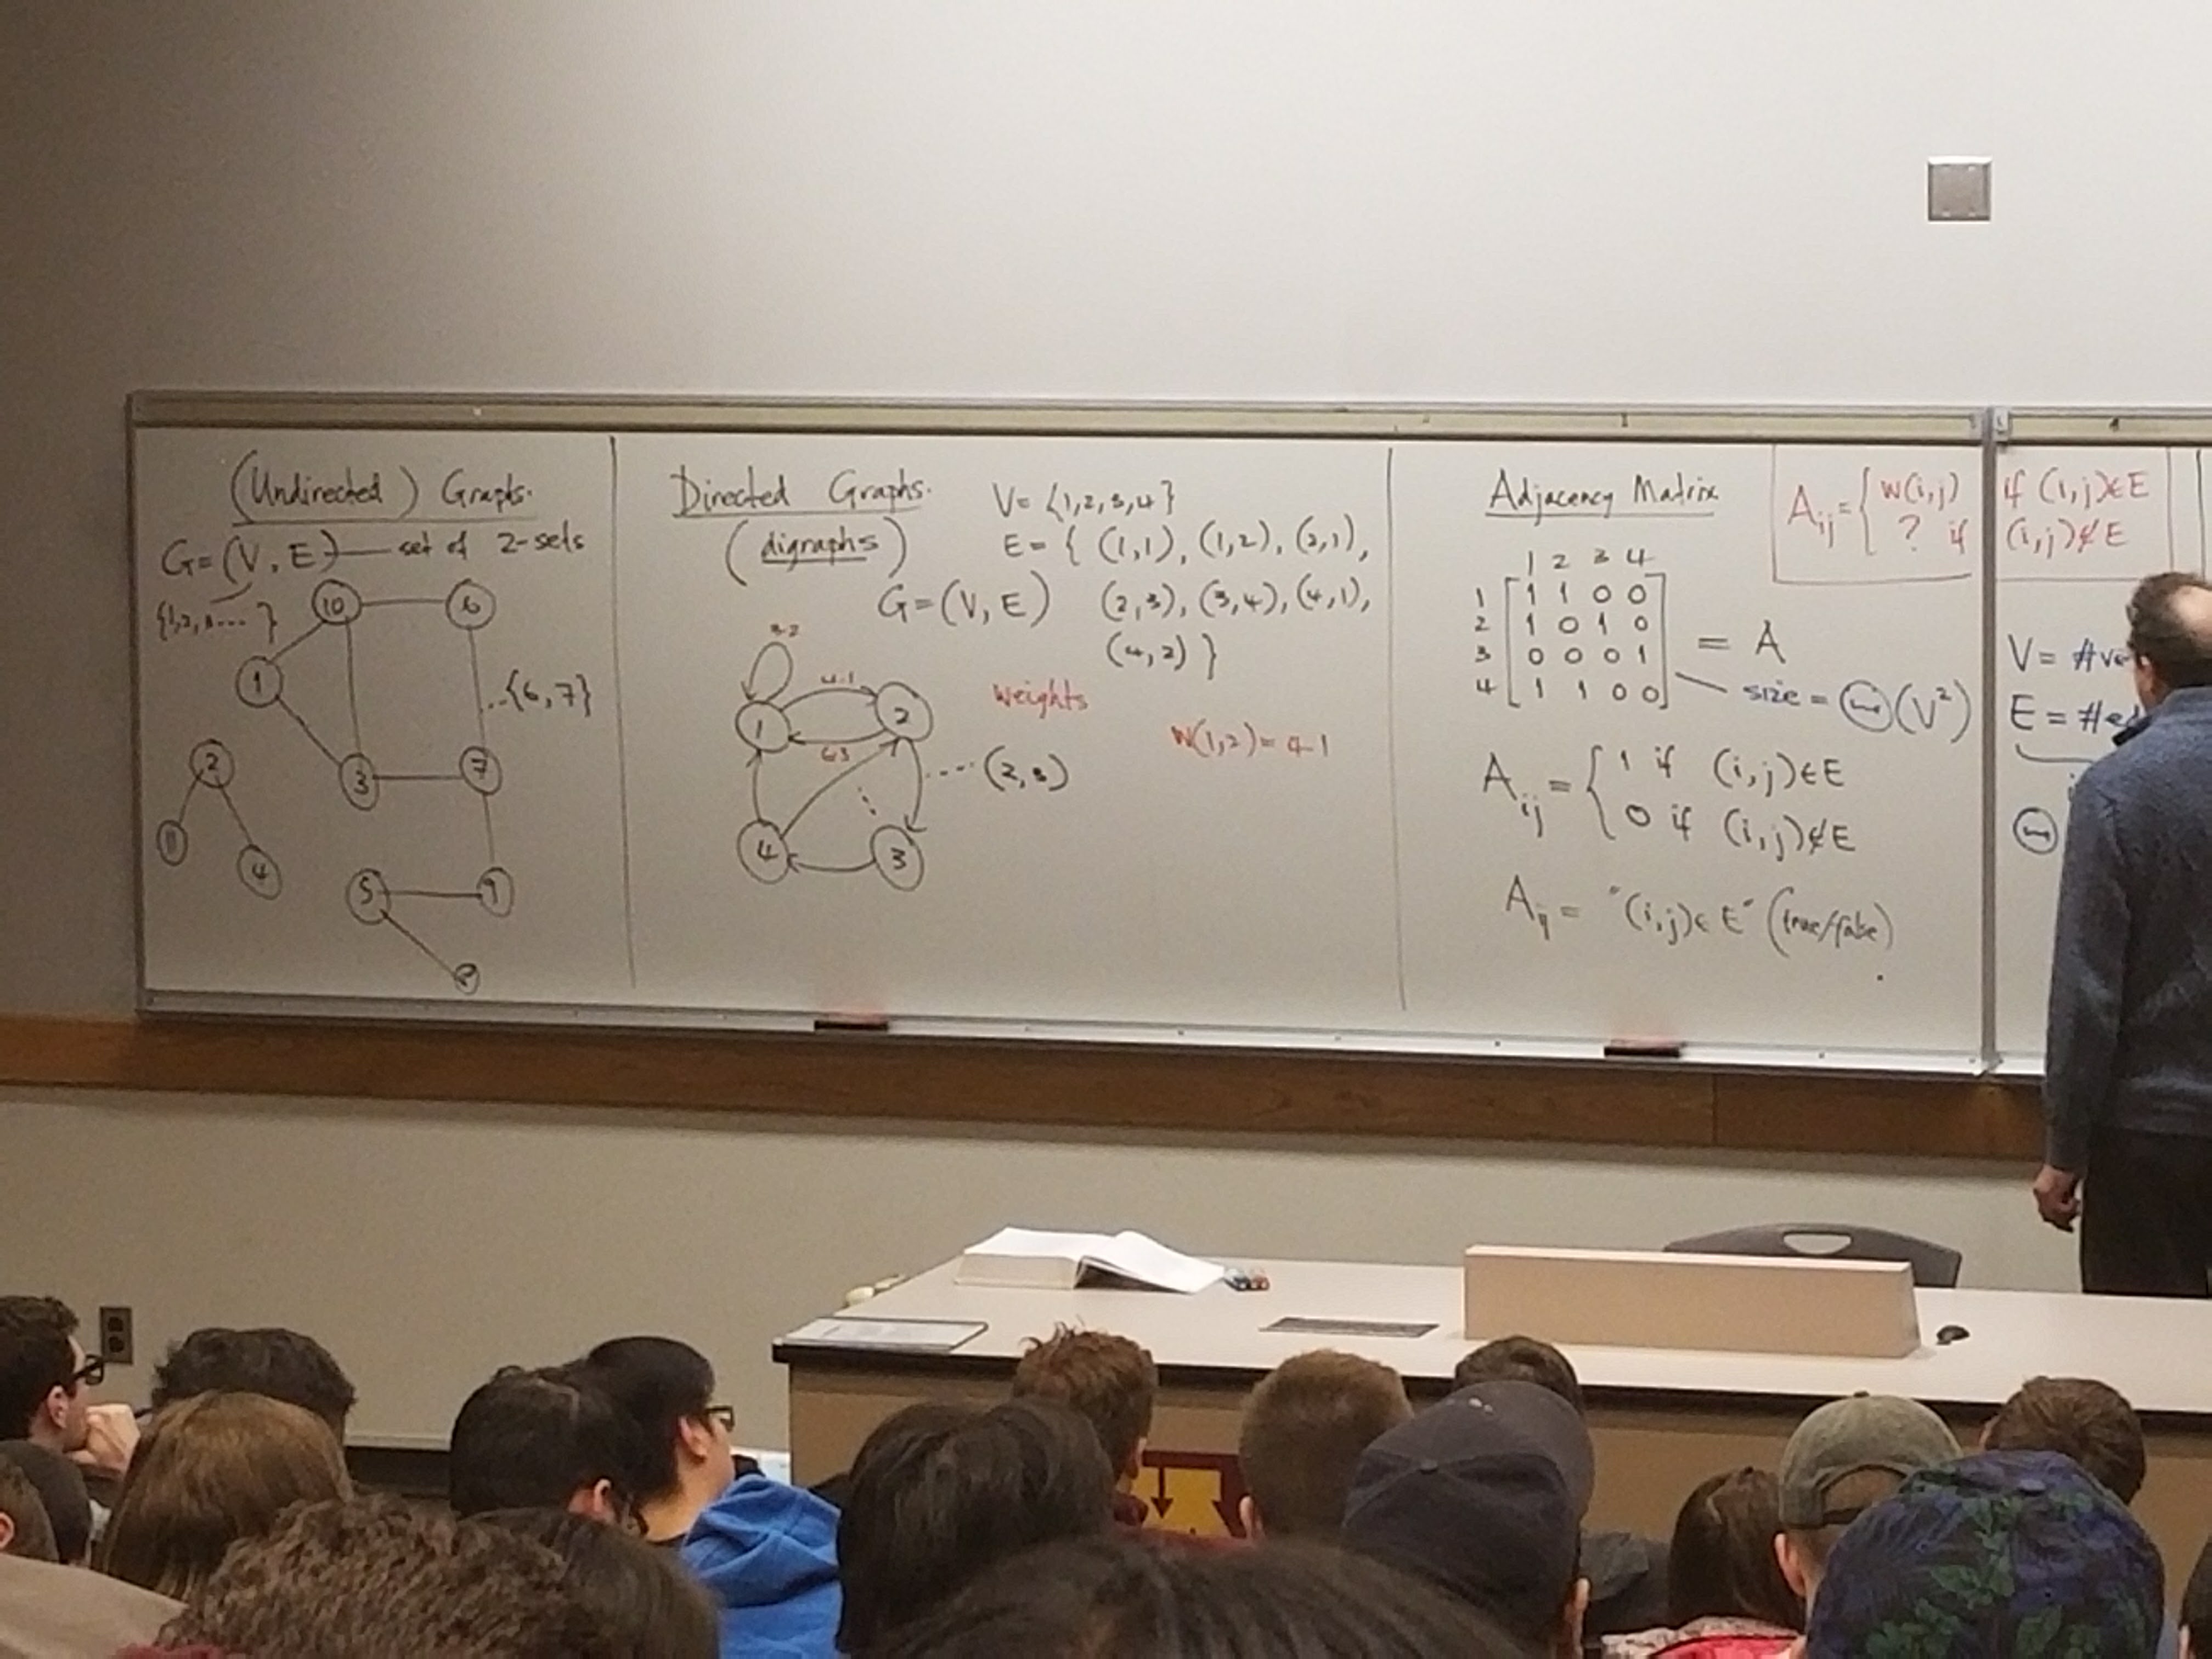 (Undirected) Graphs.
G=(V, E) set of 2-sets
{1,2, .... }
10
6
1
..{6,7}
2
3
7
11
4
5
9
8
Directed Graphs.
(digraphs)
V= {1,2,3,4}
E= { (1,1), (1,2), (2,1),
(2,3), (3,4), (4,1),
(4,2) }
G=(V, E)
4.1
1
2
6.3
weights
W(1,2)= 4.1
.... (2,3)
4
3
Adjacency Matrix
1 2 3 4
1 1 1 0 0
2 1 0 1 0
3 0 0 0 1
4 1 1 0 0
= A
size = Θ(V²)
Aij = { 1 if (i,j)∈E
0 if (i,j)∉E
Aij = "(i,j)∈ E" (true/false)
Aij = { w(i,j) if (i,j)∈E
? if (i,j)∉E
V= #ve
E = #ed
Θ